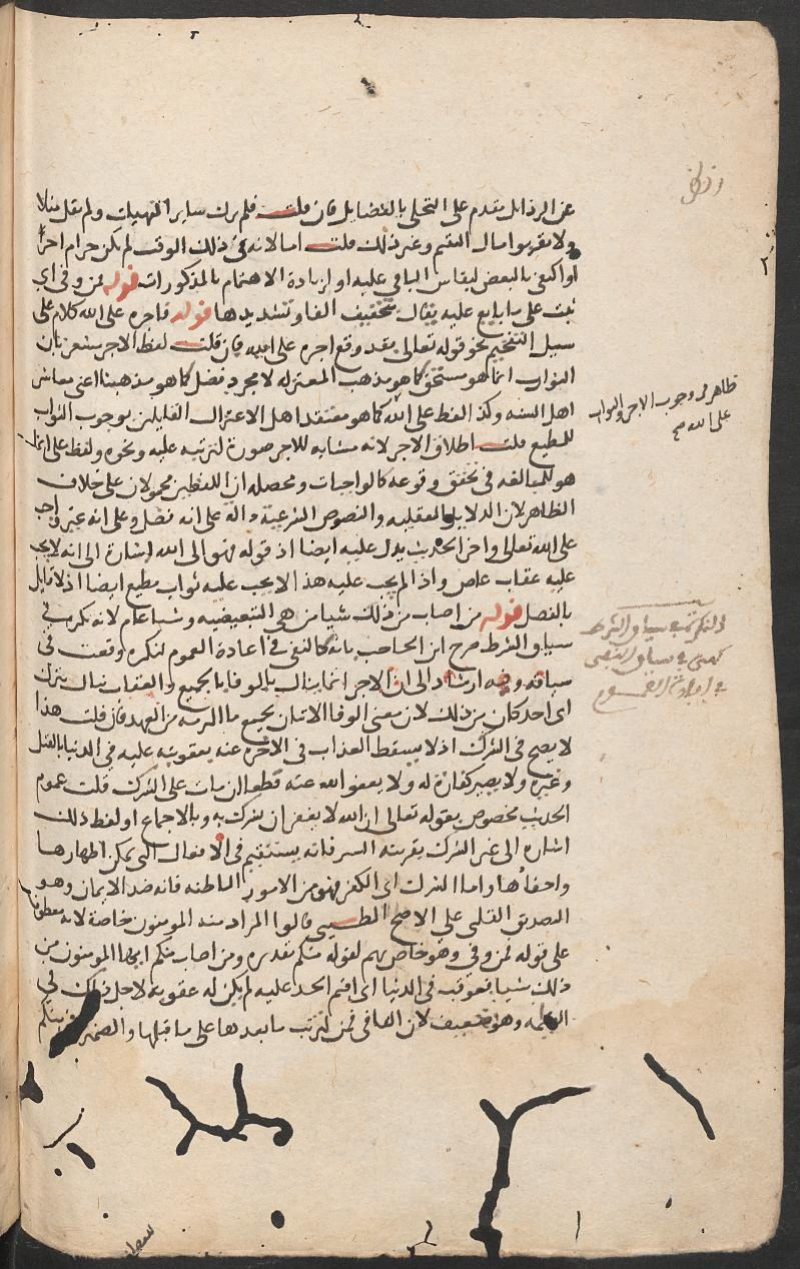 عن الرذايل مقدم على التحلي بالفضايل فان قلت فلم ترك ساير المنهيات ولم يقل مثلا
ولا تقربوا مال اليتيم وغير ذلك قلت اما لانه في ذلك الوقت لم يكن حرام اخر
او اكتفى بالبعض ليقاس الباقي عليه او لزيادة الاهتمام بالمذكورات قوله فمن وفى اي
ثبت على ما بايع عليه يقال بتخفيف الفا وتشديدها قوله فاجره على الله كلام على
سبيل التفخيم نحو قوله تعالى فقد وقع اجره على الله فان قلت لفظ الاجر مشعر بان
الثواب انما هو مستحق كما هو مذهب المعتزله لا مجرد فضل كما هو مذهبنا اعني معاشر
اهل السنه وكذا لفظ على الله كما هو معتقد اهل الاعتزال القايلين بوجوب الثواب
للمطيع قلت اطلاق الاجر لانه مشابه للاجر صورة لترتبه عليه ونحوه ولفظ على انما
هو للمبالغه في تحقق وقوعه كالواجبات ومحصله ان اللفظين محمولان على خلاف
الظاهر لان الدلايل العقليه والنصوص الشرعية دالة على انه فضل وعلى انه غير واجب
على الله تعالى واخر الحديث يدل عليه ايضا اذ قوله فهو الى الله اشارة الى انه لا يجب
عليه عقاب عاص واذا لم يجب عليه هذا لا يجب عليه ثواب مطيع ايضا اذ لا قايل
بالفصل قوله من اصاب من ذلك شيا من هي التبعيضيه وشيا عام لانه نكرة في
سياق الشرط صرح ابن الحاجب بانه كالنفي في افادة العموم لنكرة وقعت في
سياقه وفيه ارشاد الى ان الاجر انما ينال بالوفا بالجميع والعقاب ينال بترك
اي احد كان من ذلك لان معنى الوفا الاتيان بجميع ما التزمه من العهد فان قلت هذا
لا يصح في الشرك اذ لا يسقط العذاب في الاخرة عنه بعقوبته عليه في الدنيا بالقتل
وغيره ولا يصير كفارة له ولا يعفو الله عنه قطعا ان مات على الشرك قلت عموم
الحديث مخصوص بقوله تعالى ان الله لا يغفر ان يشرك به وبالاجماع او لفظ ذلك
اشارة الى غير الشرك بقرينة الستر فانه يستقيم في الافعال التي يمكن اظهارها
واخفاؤها واما الشرك اي الكفر فهو من الامور الباطنه فانه ضد الايمان وهو
التصديق القلبي على الاصح الطيبي قالوا المراد منه المومنون خاصة لانه معطوف
على قوله فمن وفى وهو خاص بهم لقوله منكم تقديره ومن اصاب منكم ايها المومنون من
ذلك شيا فعوقب في الدنيا اي اقيم الحد عليه لم يكن له عقوبة لاجل ذلك في
القيمه وهو ضعيف لان الفا في فمن لترتب ما بعدها على ما قبلها والضمير منكم
ظاهر في وجوب الاجر والثواب
على الله صح
النكرة في سياق الشرط
كهي في سياق النفي
في افادة العموم